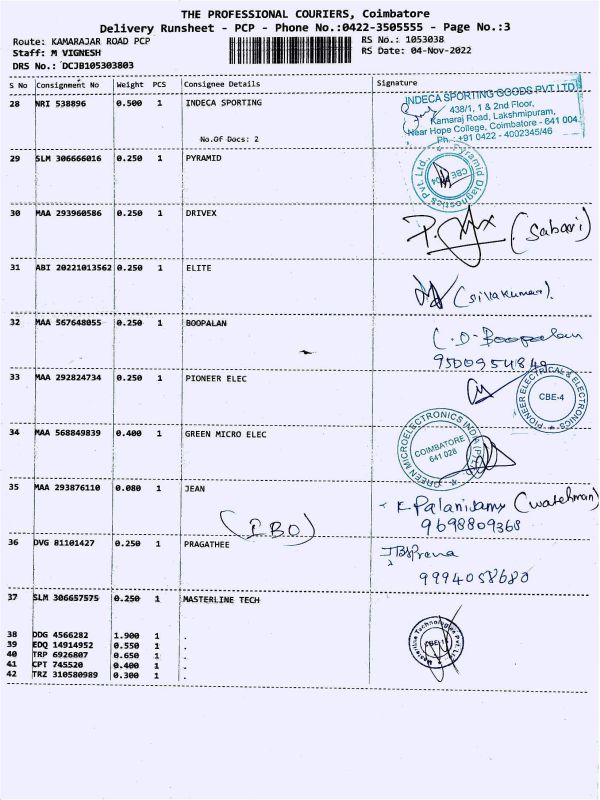 THE PROFESSIONAL COURIERS, Coimbatore
Delivery Runsheet - PCP - Phone No.:0422-3505555 - Page No.:3
Route: KAMARAJAR ROAD PCP
RS No.: 1053038
Staff: M VIGNESH
RS Date: 04-Nov-2022
DRS No.: DCJB105303803
S No Consignment No Weight PCS Consignee Details Signature
28 NRI 538896 0.500 1 INDECA SPORTING
No.Of Docs: 2
INDECA SPORTING GOODS PVT LTD
438/1, 1 & 2nd Floor,
Kamaraj Road, Lakshmipuram,
Near Hope College, Coimbatore - 641 004.
Ph : +91 0422 - 4002345/46
29 SLM 306666016 0.250 1 PYRAMID
Pyramid Diagnostics Pvt. Ltd.,
CBE-004
30 MAA 293960586 0.250 1 DRIVEX
(Sabari)
31 ABI 20221013562 0.250 1 ELITE
(Sivakumar).
32 MAA 567648055 0.250 1 BOOPALAN
Boopalan
9500954849
33 MAA 292824734 0.250 1 PIONEER ELEC
PIONEER ELECTRICAL & ELECTRONICS
CBE-4
34 MAA 568849839 0.400 1 GREEN MICRO ELEC
GREEN MICROELECTRONICS INDIA (P) LTD
COIMBATORE
641 028
35 MAA 293876110 0.080 1 JEAN
K Palanisamy (watchman)
9698809368
(IBO)
36 DVG 81101427 0.250 1 PRAGATHEE
9994058680
37 SLM 306657575 0.250 1 MASTERLINE TECH
Masterline Technologies Pvt. Ltd.
38 DDG 4566282 1.900 1 .
39 EDQ 14914952 0.550 1 .
40 TRP 6926807 0.650 1 .
41 CPT 745520 0.400 1 .
42 TRZ 310580989 0.300 1 .